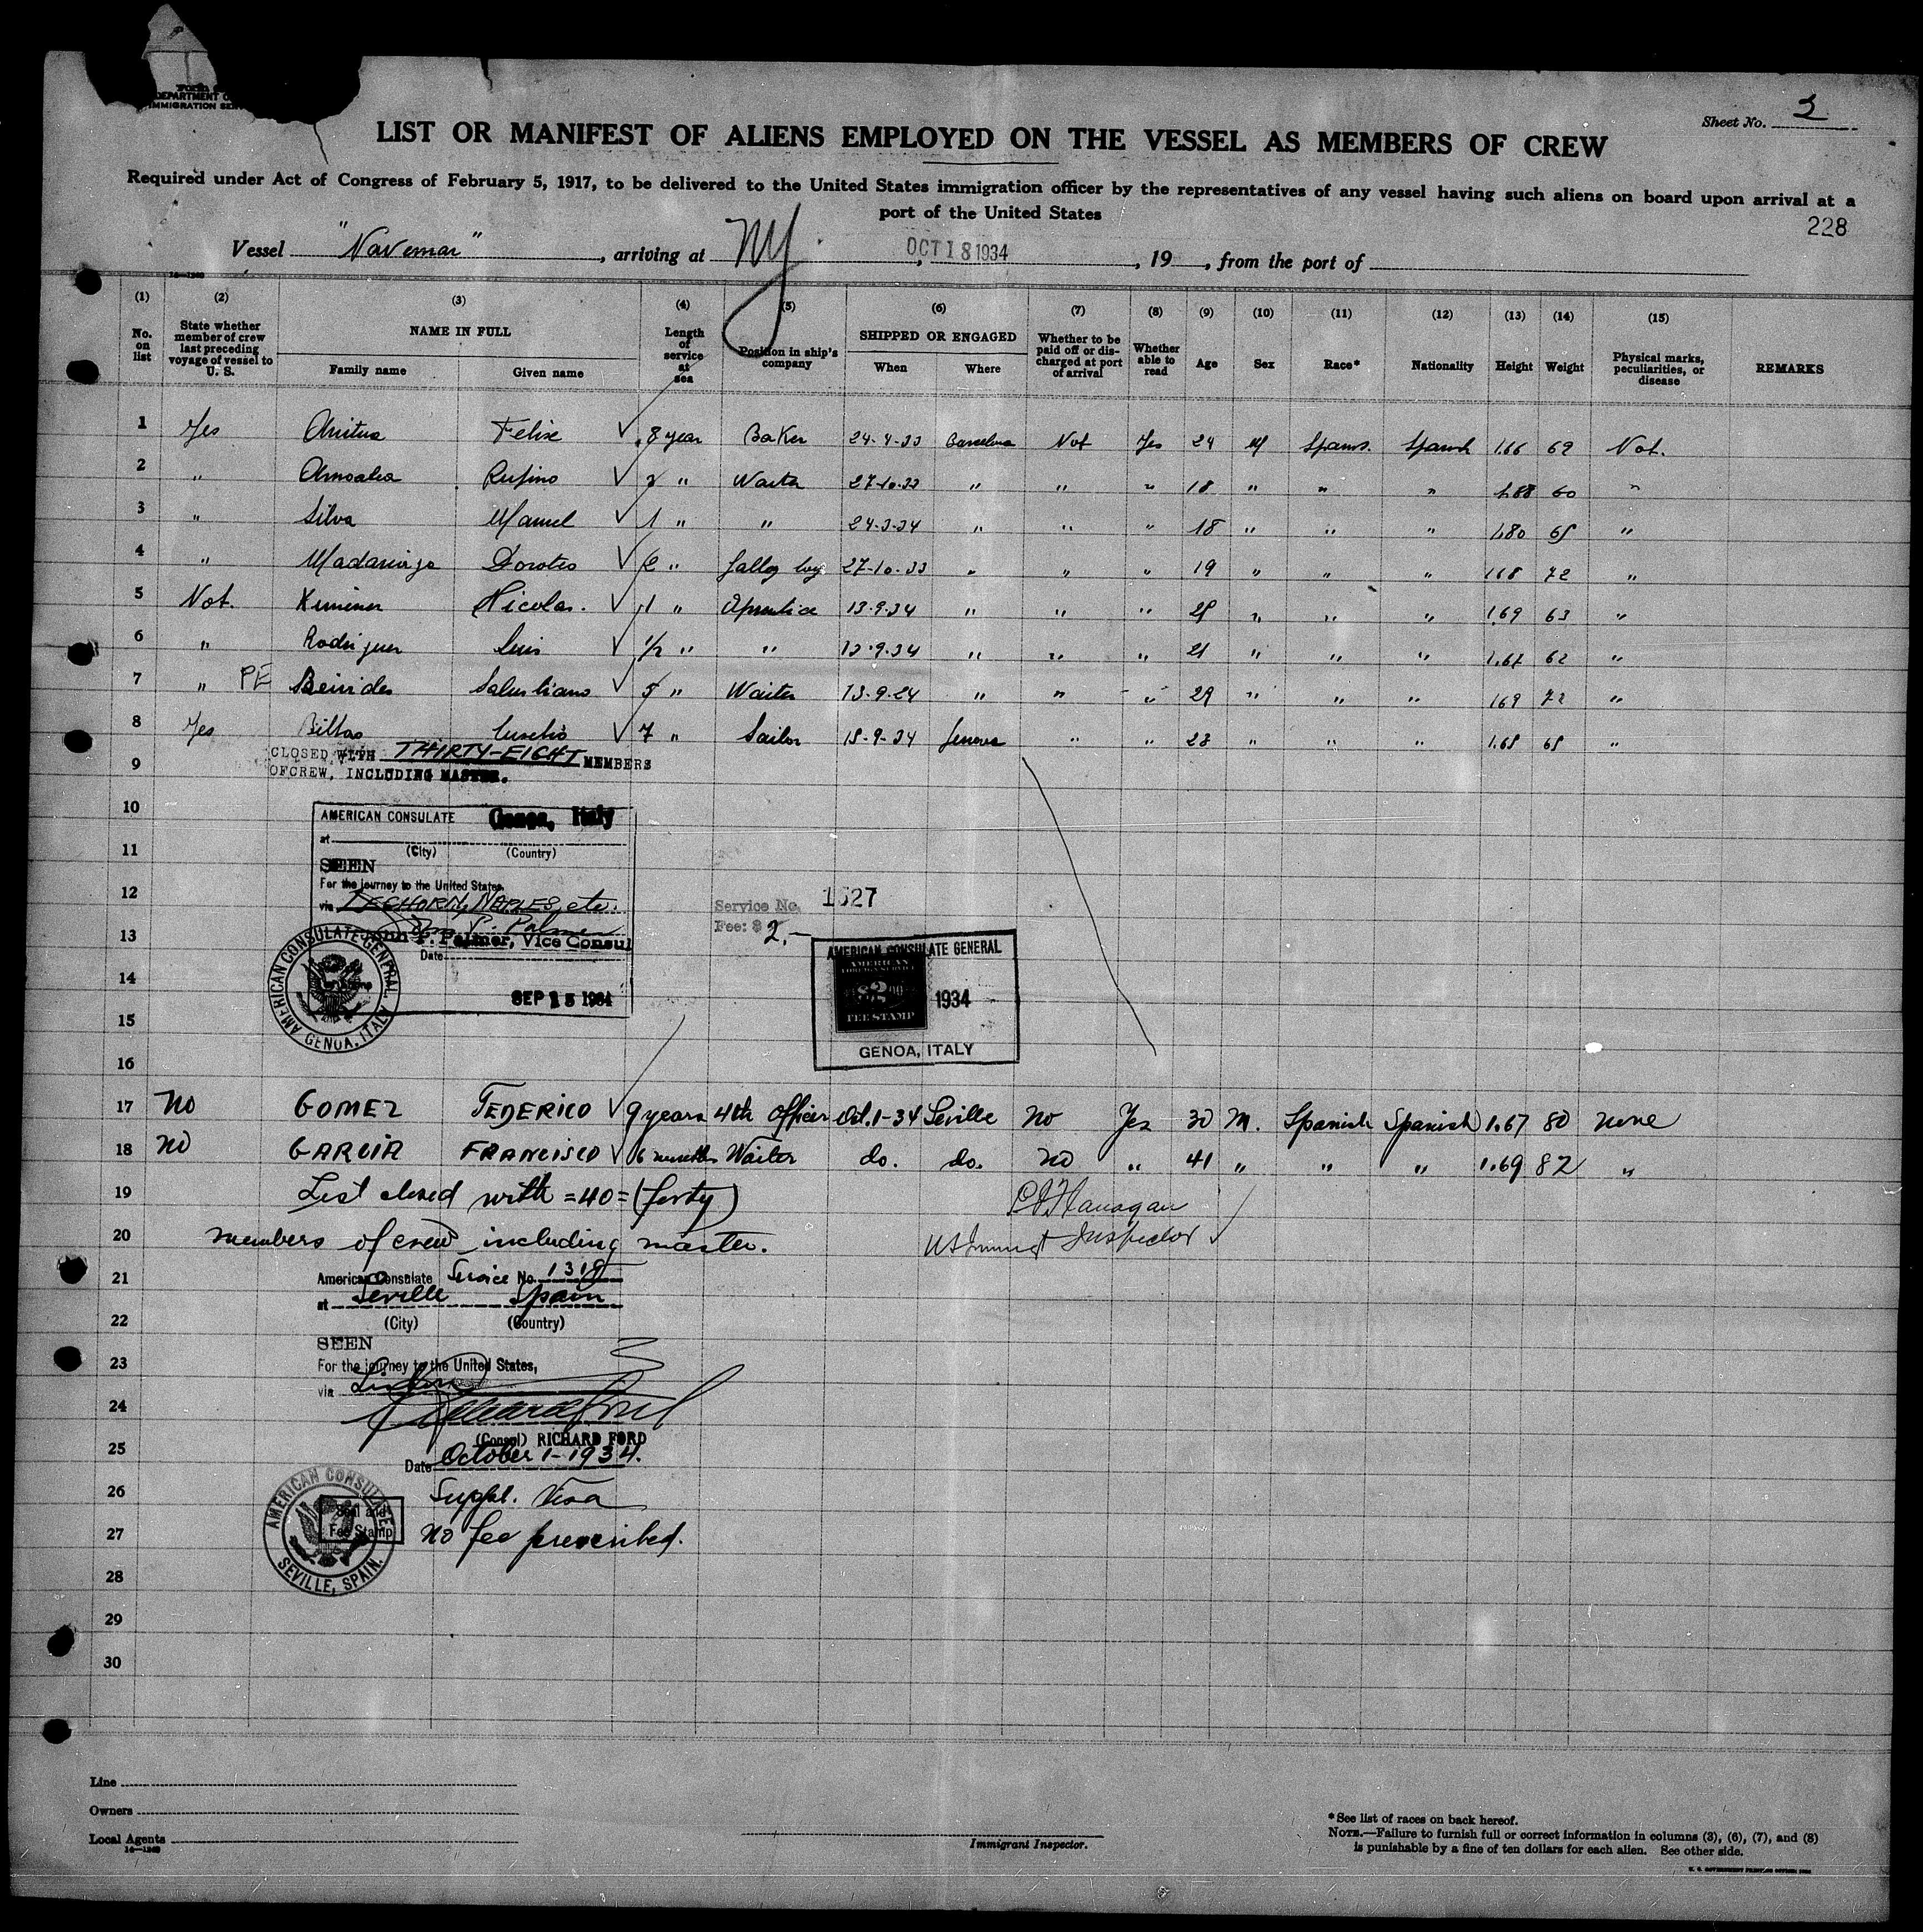 DEPARTMENT O
IMMIGRATION SER
Sheet No. 3
LIST OR MANIFEST OF ALIENS EMPLOYED ON THE VESSEL AS MEMBERS OF CREW
Required under Act of Congress of February 5, 1917, to be delivered to the United States immigration officer by the representatives of any vessel having such aliens on board upon arrival at a
port of the United States
228
Vessel "Navemar", arriving at NY, OCT 18 1934, 19, from the port of
(1) (2) (3) (4) (5) (6) (7) (8) (9) (10) (11) (12) (13) (14) (15)
No. on list State whether member of crew last preceding voyage of vessel to U. S. NAME IN FULL Length of service at sea Position in ship's company SHIPPED OR ENGAGED Whether to be paid off or discharged at port of arrival Whether able to read Age Sex Race* Nationality Height Weight Physical marks, peculiarities, or disease REMARKS
Family name Given name When Where
1 Yes Felix 8 year Baker 24-4-33 Barcelona Not Yes 24 M Spanis. Spanish 1.66 62 Not.
2 " Rufino 2 " Waiter 27-10-33 " " " 18 " " " 60 "
3 " Silva Manuel 1 " " 24-3-34 " " " 18 " " " 1.80 65 "
4 " Doroteo 2 " Galley boy 27-10-33 " " " 19 " " " 72 "
5 Not. Nicolas. 1 " Aprentice 13-9-34 " " " " " " 1.69 63 "
6 " Rodriguez Luis 1/2 " " 13-9-34 " " " 21 " " " 1.67 62 "
7 " PE Salustiano 5 " Waiter 13-9-34 " " " 29 " " " 1.69 72 "
8 Yes Bilbao Eusebio 7 " Sailor 15-9-34 Genova " " 23 " " " 1.65 65 "
CLOSED WITH THIRTY-EIGHT MEMBERS
OF CREW, INCLUDING MASTER.
9
10
AMERICAN CONSULATE Genoa, Italy
at
(City) (Country)
11
SEEN
For the journey to the United States,
12
via LEGHORN, NAPLES, etc.
Service No. 1527
Fee: $ 2.-
13
John P. Palmer, Vice Consul
Date
AMERICAN CONSULATE GENERAL
AMERICAN
FOREIGN SERVICE
$2.00
FEE STAMP
1934
GENOA, ITALY
14
SEP 15 1934
AMERICAN CONSULATE GENERAL
GENOA, ITALY
15
16
17 No GOMEZ FEDERICO 9 years 4th officer Oct. 1-34 Seville no Yes 30 M. Spanish Spanish 1.67 80 none
18 no GARCIA FRANCISCO 6 months Waiter do. do. no " 41 " " " 1.69 82 "
19 List closed with =40= (forty)
20 members of crew including master.
Flanagan
US Immigt Inspector
21 American Consulate Service No. 1319
at Seville Spain
22 (City) (Country)
SEEN
23 For the journey to the United States,
via Lisbon
24
(Consul) RICHARD FORD
25 Date October 1-1934.
26 Suppl. Visa
27 no fee prescribed.
AMERICAN CONSULATE
Seal and
Fee Stamp
SEVILLE, SPAIN.
28
29
30
Line
Owners
Local Agents
Immigrant Inspector.
*See list of races on back hereof.
NOTE.—Failure to furnish full or correct information in columns (3), (6), (7), and (8)
is punishable by a fine of ten dollars for each alien. See other side.